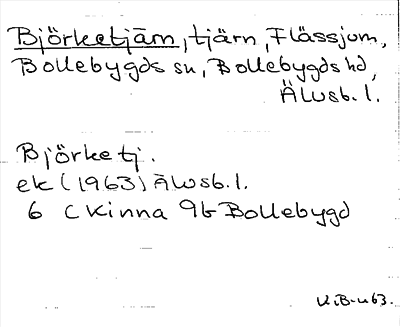 Björketjärn, tjärn, Flässjum,
Bollebygds sn, Bollebygds hd,
Älvsb. l.
Björketj.
ek (1963) Älvsb. l.
6 C Kinna 9b Bollebygd
U.B-u 63.